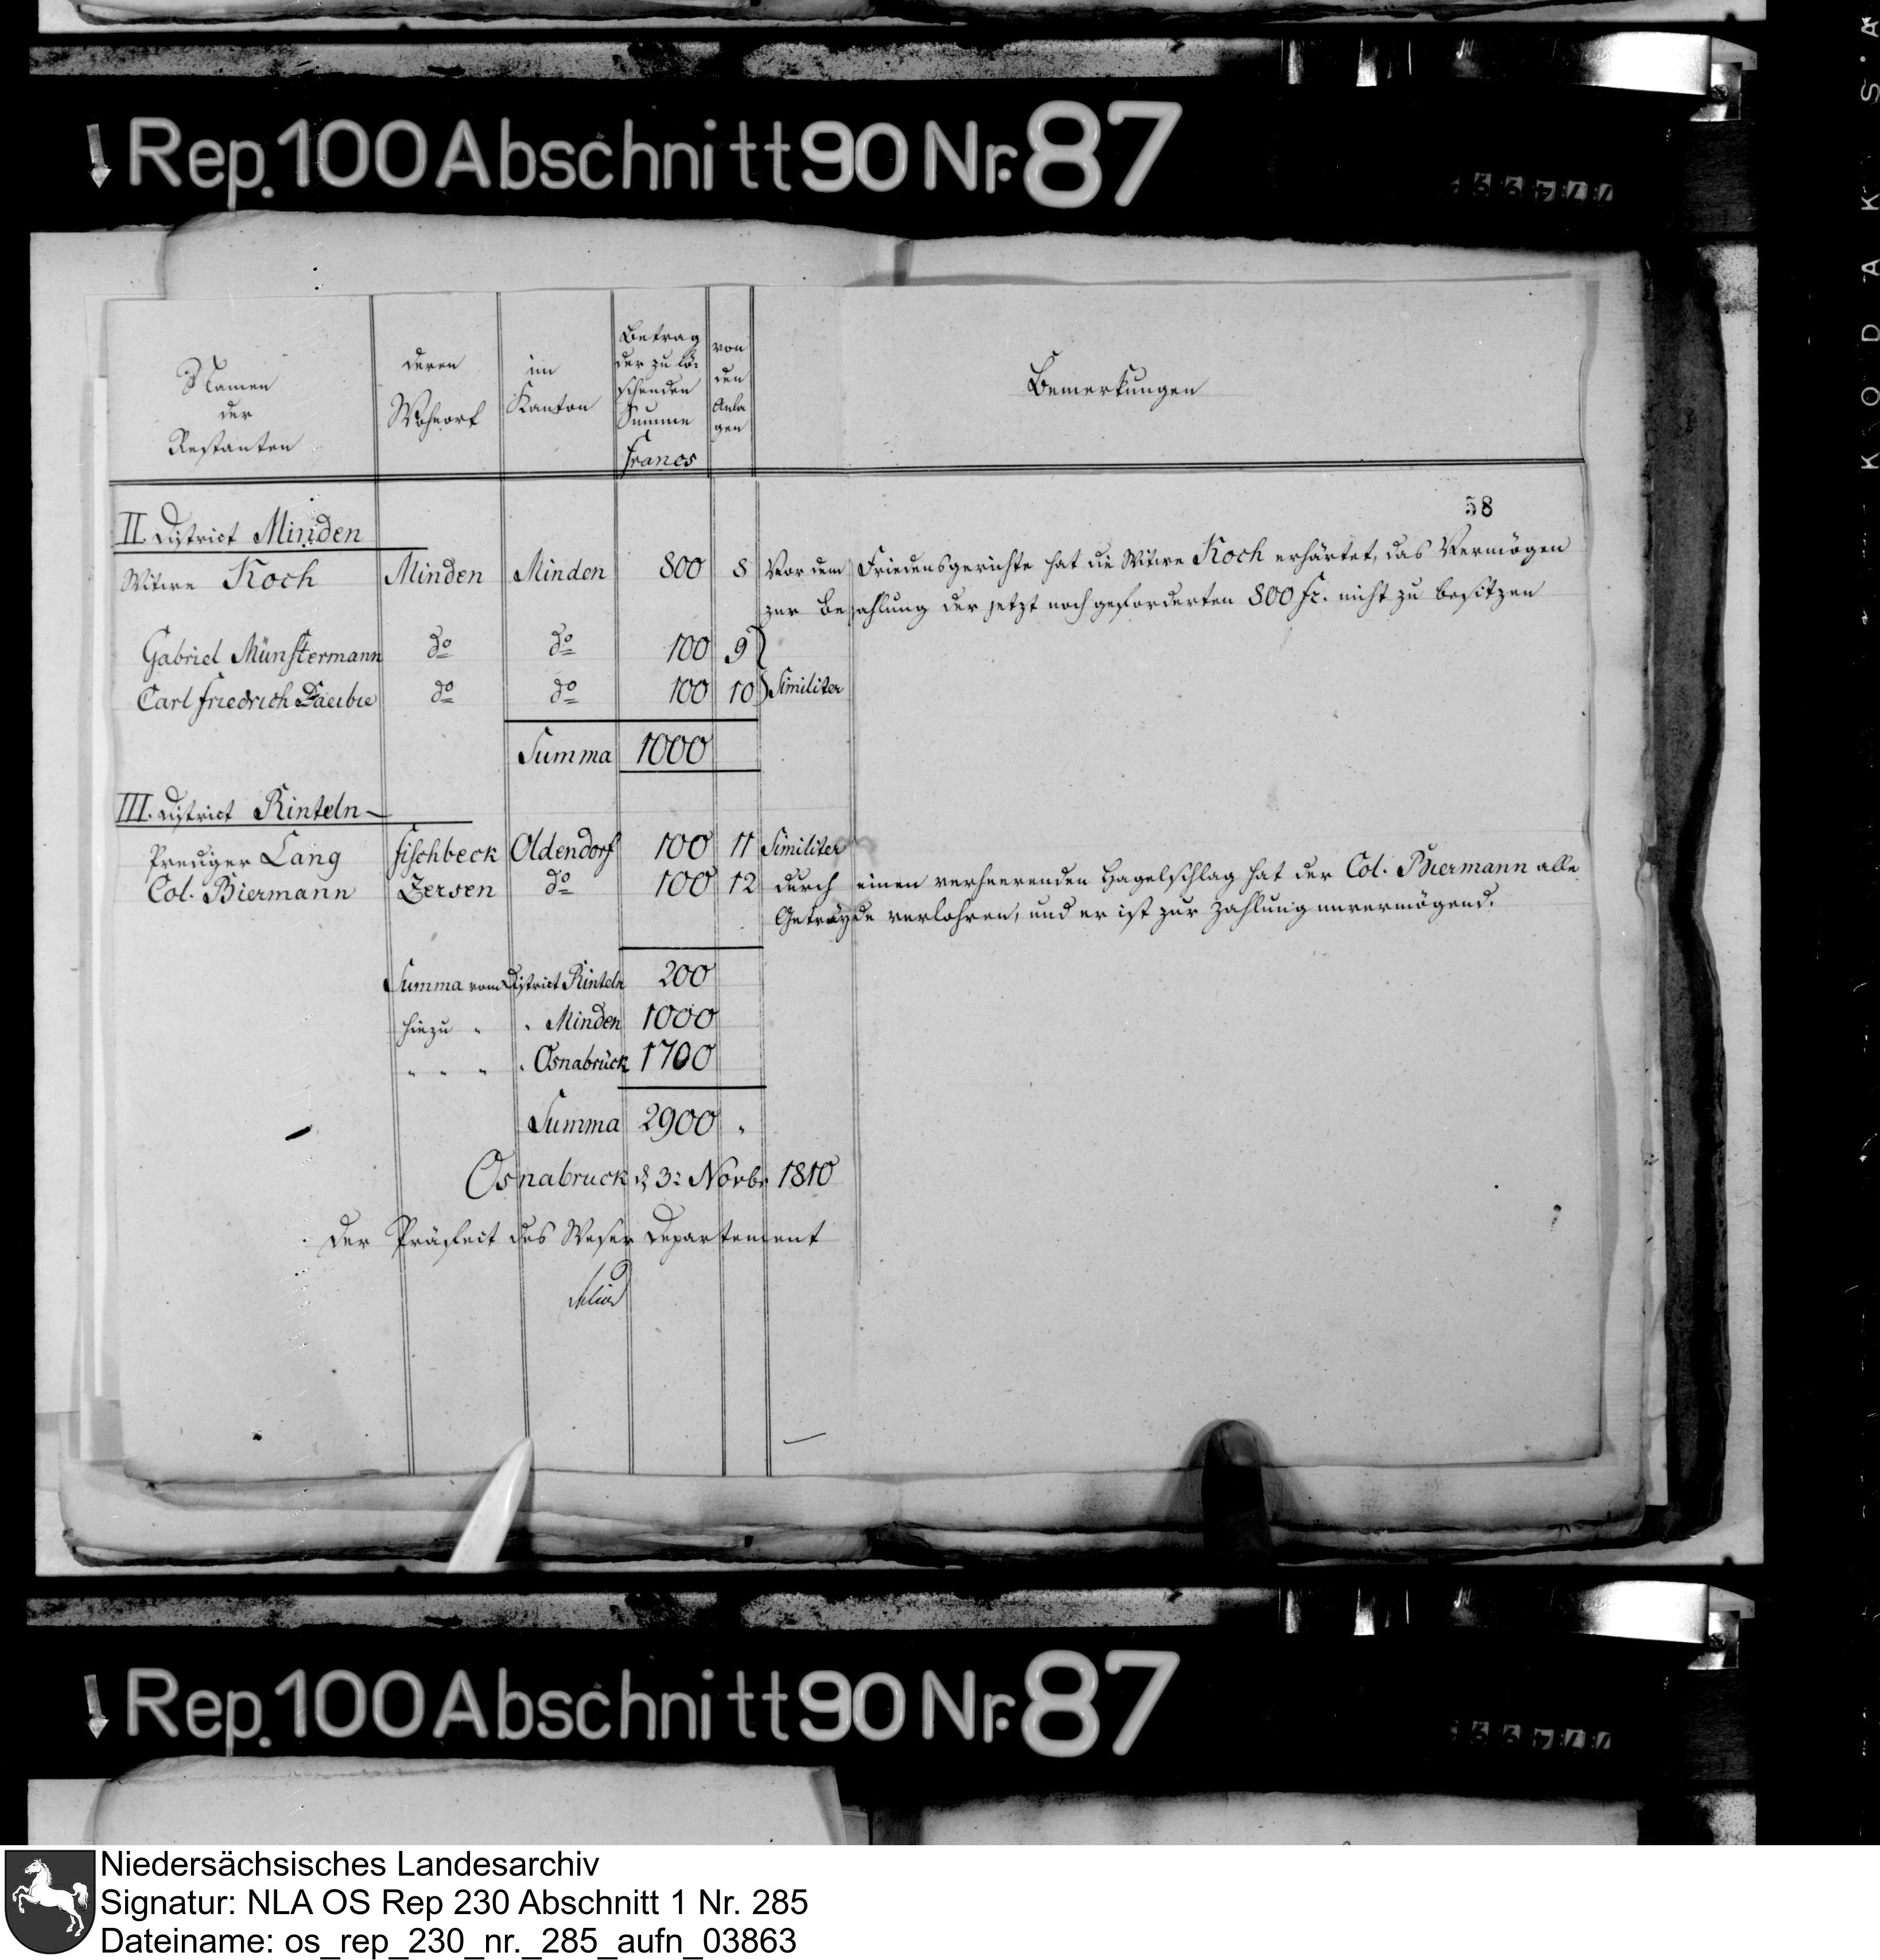 Rep. 100 Abschnitt 90 Nr. 87
Namen der Restanten
deren Wohnort
im Kanton
Betrag der zu lö-
schenden Summe
Francs
von den Anla
gen
Bemerkungen
58
II. District Minden
Witwe Koch Minden Minden 800 8 Vor dem Friedensgerichte hat die Witwe Koch erhärtet, das Vermögen
zur Bezahlung der jetzt noch geforderten 800 fr. nicht zu besitzen
Gabriel Münstermann do do 100 9
Carl Friedrich do do 100 10 Similiter
Summa 1000
III. District Rinteln
Prediger Lang Fischbeck Oldendorf 100 11 Similiter
Col. Biermann Zersen do 100 12 durch einen verheerenden Hagelschlag hat der Col. Biermann alle
Getrayde verlohren, und er ist zur Zahlung unvermögend.
Summa vom District Rinteln 200
hiezu " " Minden 1000
" " " " Osnabrück 1700
Summa 2900 "
Osnabruck d 3t Novbr 1810
Der Präfect des Weser Departement
Rep. 100 Abschnitt 90 Nr. 87
KODAK S.A
Niedersächsisches Landesarchiv
Signatur: NLA OS Rep 230 Abschnitt 1 Nr. 285
Dateiname: os_rep_230_nr._285_aufn_03863